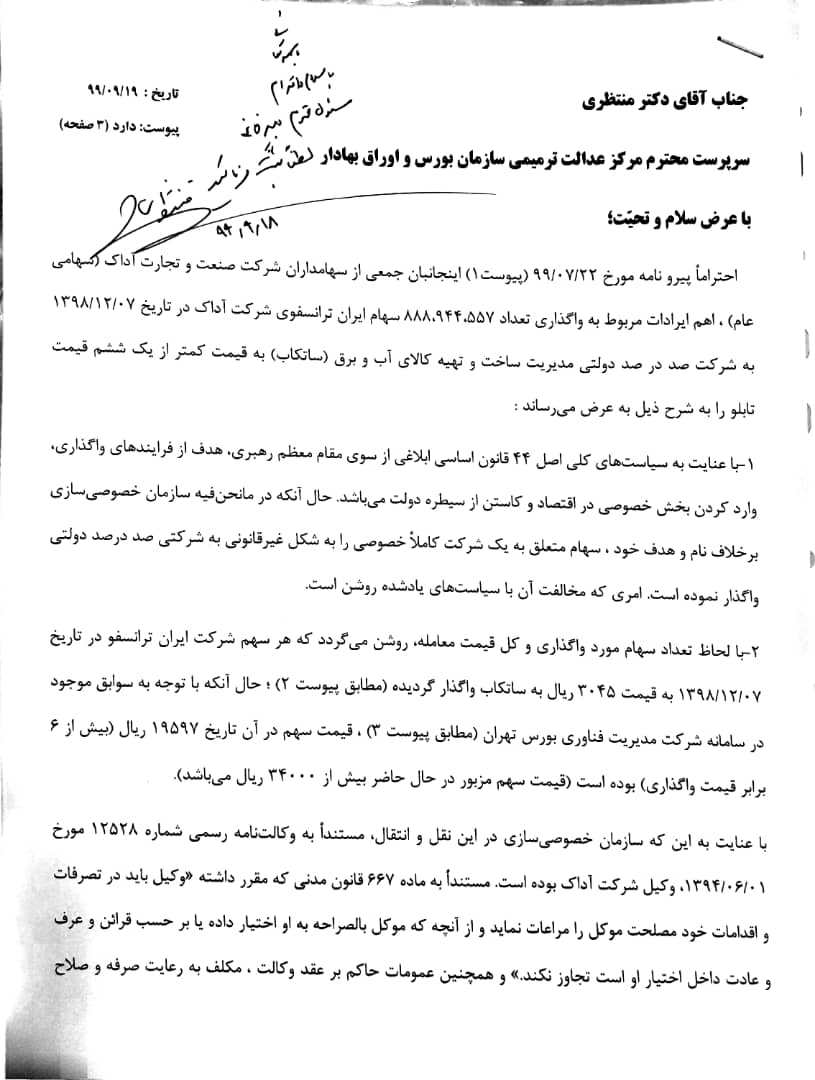 تاریخ : ۹۹/۰۹/۱۹
پیوست: دارد (۳ صفحه)
با سلام و احترام
لطفاً ثبت
۹۹/۹/۱۸
جناب آقای دکتر منتظری
سرپرست محترم مرکز عدالت ترمیمی سازمان بورس و اوراق بهادار
با عرض سلام و تحیّت؛
احتراماً پیرو نامه مورخ ۹۹/۰۷/۲۲ (پیوست۱) اینجانبان جمعی از سهامداران شرکت صنعت و تجارت آداک (سهامی
عام) ، اهم ایرادات مربوط به واگذاری تعداد ۸۸۸،۹۴۴،۵۵۷ سهام ایران ترانسفوی شرکت آداک در تاریخ ۱۳۹۸/۱۲/۰۷
به شرکت صد در صد دولتی مدیریت ساخت و تهیه کالای آب و برق (ساتکاب) به قیمت کمتر از یک ششم قیمت
تابلو را به شرح ذیل به عرض می‌رساند :
۱-با عنایت به سیاست‌های کلی اصل ۴۴ قانون اساسی ابلاغی از سوی مقام معظم رهبری، هدف از فرایندهای واگذاری،
وارد کردن بخش خصوصی در اقتصاد و کاستن از سیطره دولت می‌باشد. حال آنکه در مانحن‌فیه سازمان خصوصی‌سازی
برخلاف نام و هدف خود ، سهام متعلق به یک شرکت کاملاً خصوصی را به شکل غیرقانونی به شرکتی صد درصد دولتی
واگذار نموده است. امری که مخالفت آن با سیاست‌های یادشده روشن است.
۲-با لحاظ تعداد سهام مورد واگذاری و کل قیمت معامله، روشن می‌گردد که هر سهم شرکت ایران ترانسفو در تاریخ
۱۳۹۸/۱۲/۰۷ به قیمت ۳۰۴۵ ریال به ساتکاب واگذار گردیده (مطابق پیوست ۲) ؛ حال آنکه با توجه به سوابق موجود
در سامانه شرکت مدیریت فناوری بورس تهران (مطابق پیوست ۳) ، قیمت سهم در آن تاریخ ۱۹۵۹۷ ریال (بیش از ۶
برابر قیمت واگذاری) بوده است (قیمت سهم مزبور در حال حاضر بیش از ۳۴۰۰۰ ریال می‌باشد).
با عنایت به این که سازمان خصوصی‌سازی در این نقل و انتقال، مستنداً به وکالت‌نامه رسمی شماره ۱۲۵۲۸ مورخ
۱۳۹۴/۰۶/۰۱، وکیل شرکت آداک بوده است. مستنداً به ماده ۶۶۷ قانون مدنی که مقرر داشته «وکیل باید در تصرفات
و اقدامات خود مصلحت موکل را مراعات نماید و از آنچه که موکل بالصراحه به او اختیار داده یا بر حسب قرائن و عرف
و عادت داخل اختیار او است تجاوز نکند.» و همچنین عمومات حاکم بر عقد وکالت ، مکلف به رعایت صرفه و صلاح